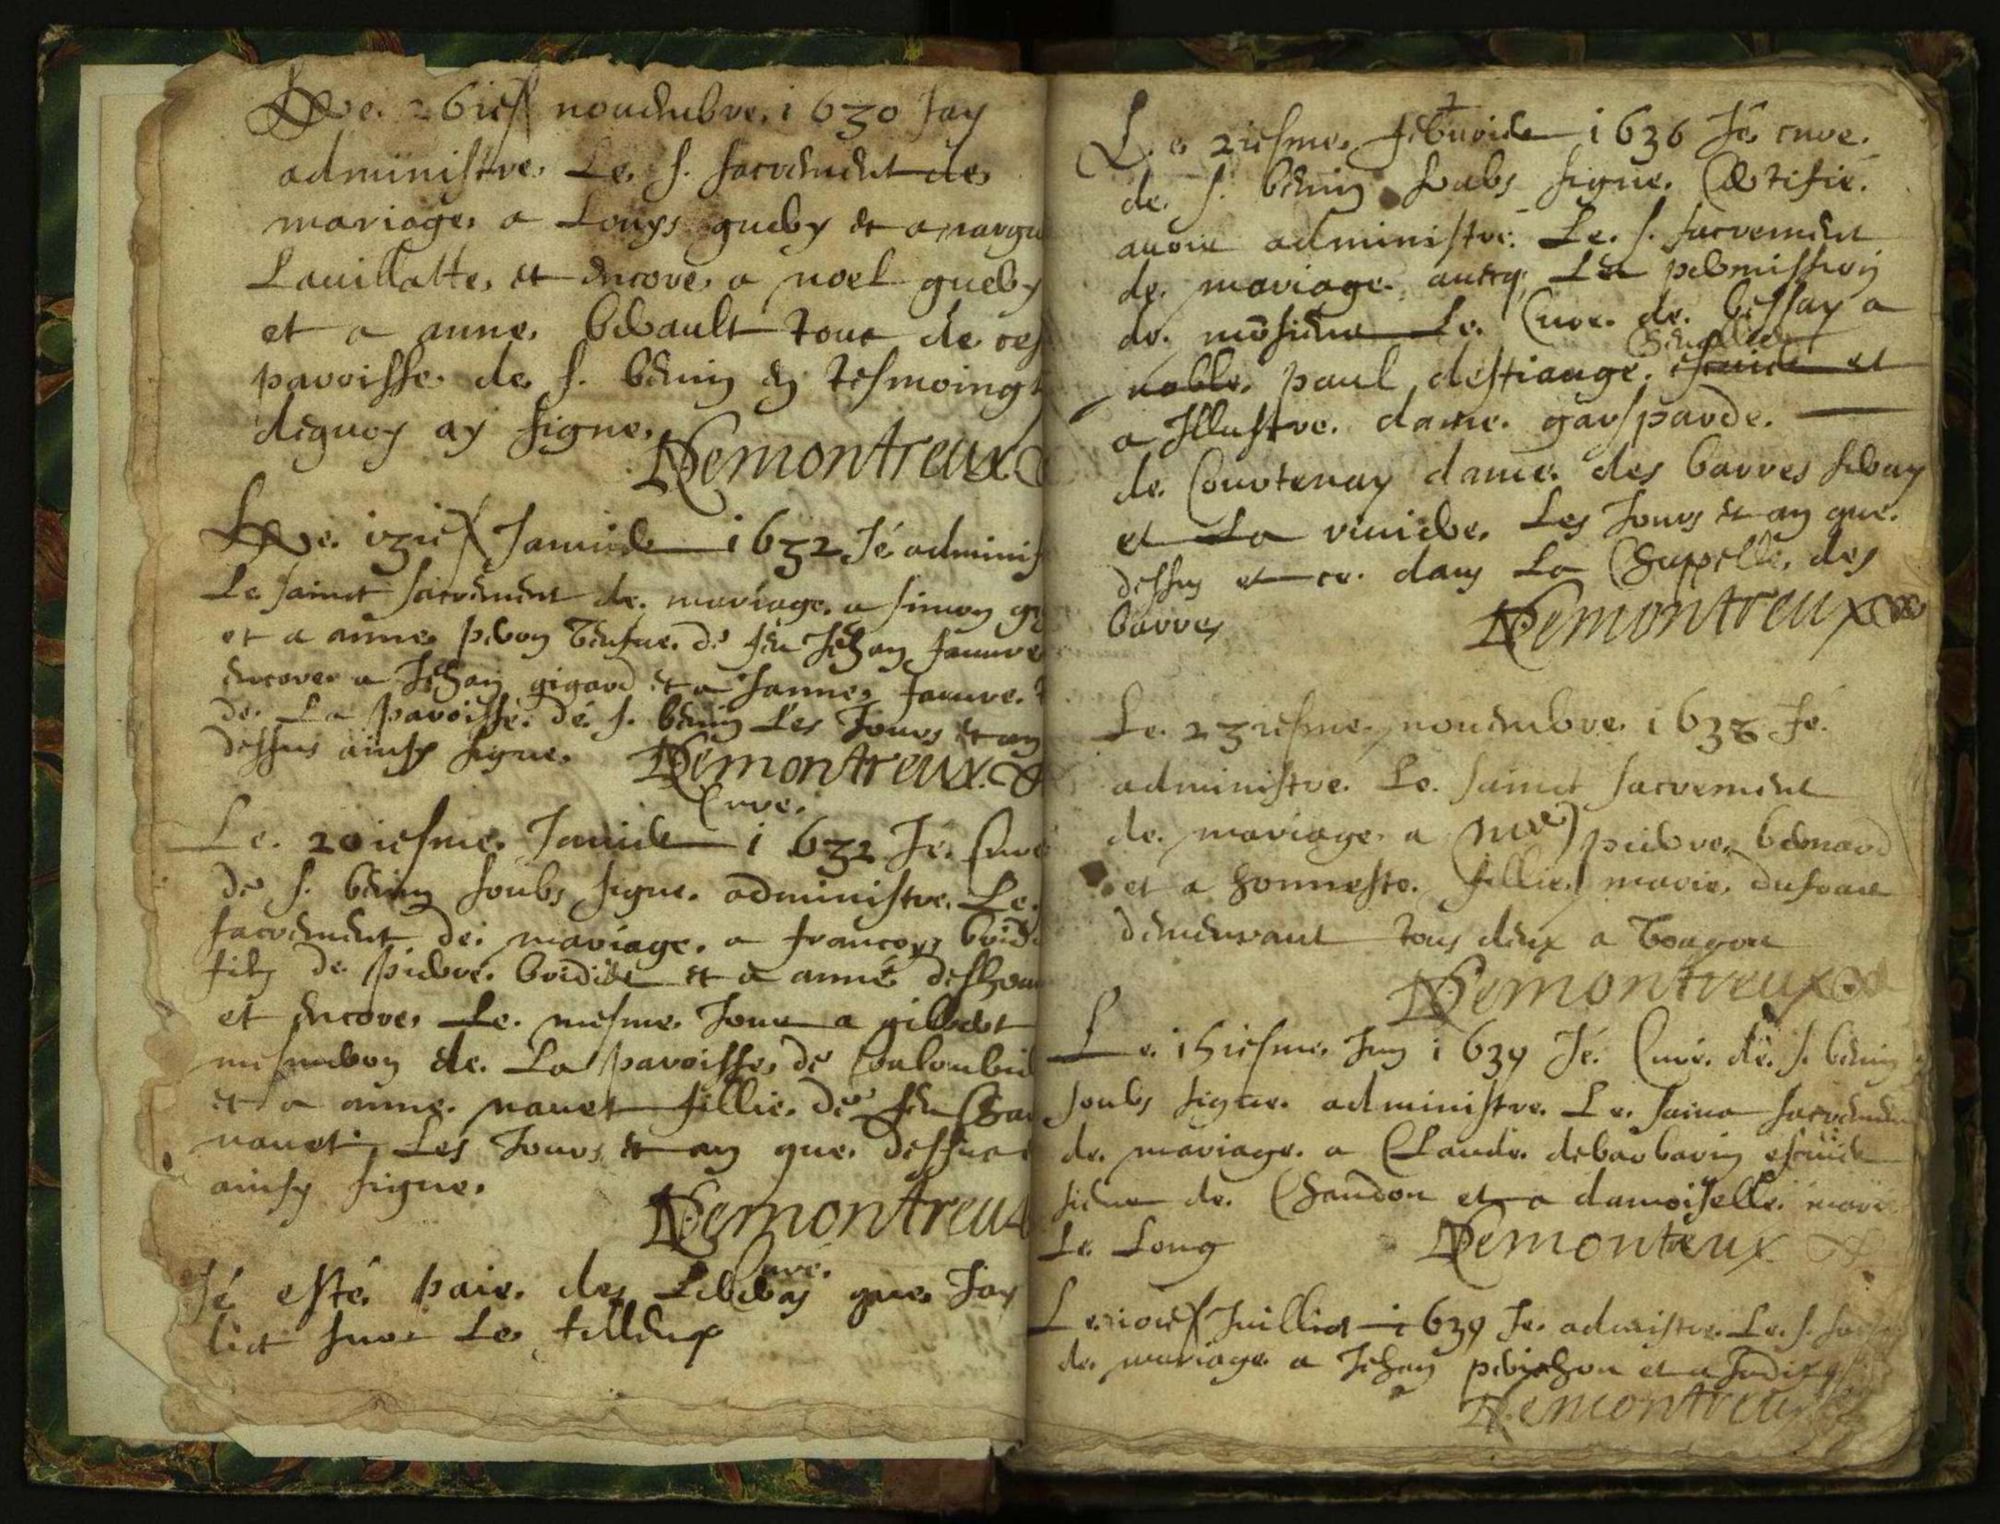 Le 26ies nouembre 1630 Jay
administre Le s. sacrement de
mariage a Louys gueby et a margu
Lauillatte et encore a noel gueby
et a anne berault tout de ces
paroisse de s. benin en tesmoingt
dequoy ay signe
Demontreux
Le 13ies Januier 1632 Jé adminis
Le sainct sacrement de mariage a simon
et a anne peron veufue de feu Jehan
encore a Jehan gigard et a Janne faure
de La paroisse de s. benin Les Jours et an
dessus ainsy signe Demontreux
Cure
Le 20iesme Januier 1632 Je Cure
de s. benin soubs signe administre Le
sacrement de mariage a francoys
filz de pierre bridier et a anne
et encore Le mesme Jour a gilbert
de La paroisse de
et a anne nauet fillie de feu
nauet Les Jours et an que dessus
ainsy signe
Demontreux
Cure
Jé esté paie des que Jay
sur Le
Le 2iesme feburier 1636 Jé cure
de s. benin soubs signe Certifie
auoir administre Le s. sacrement
de mariage auecq La permission
de monsieur Le Cure de bessay a
cheualier
noble paul destiange escuier et
a Illustre dame gasparde
de Courtenay dame des barres
et La Les Jours et an que
dessus et ce dans La Chappelle des
barres
Demontreux
Le 23iesme nouembre 1638 Jé
administre Le sainct sacrement
de mariage a Mre pierre bernard
et a honneste fillie marie
demeurant tous deux a
Demontreux
Le 15iesme Juin 1639 Jé Curé de s. benin
soubs signe administre Le sainct sacrement
de mariage a Claude debarbarin escuier
sieur de Chandon et a damoiselle marie
Le Long Demontreux
Le 10ies Juillet 1639 Je administre Le s.
de mariage a Jehan et a
Demontreux